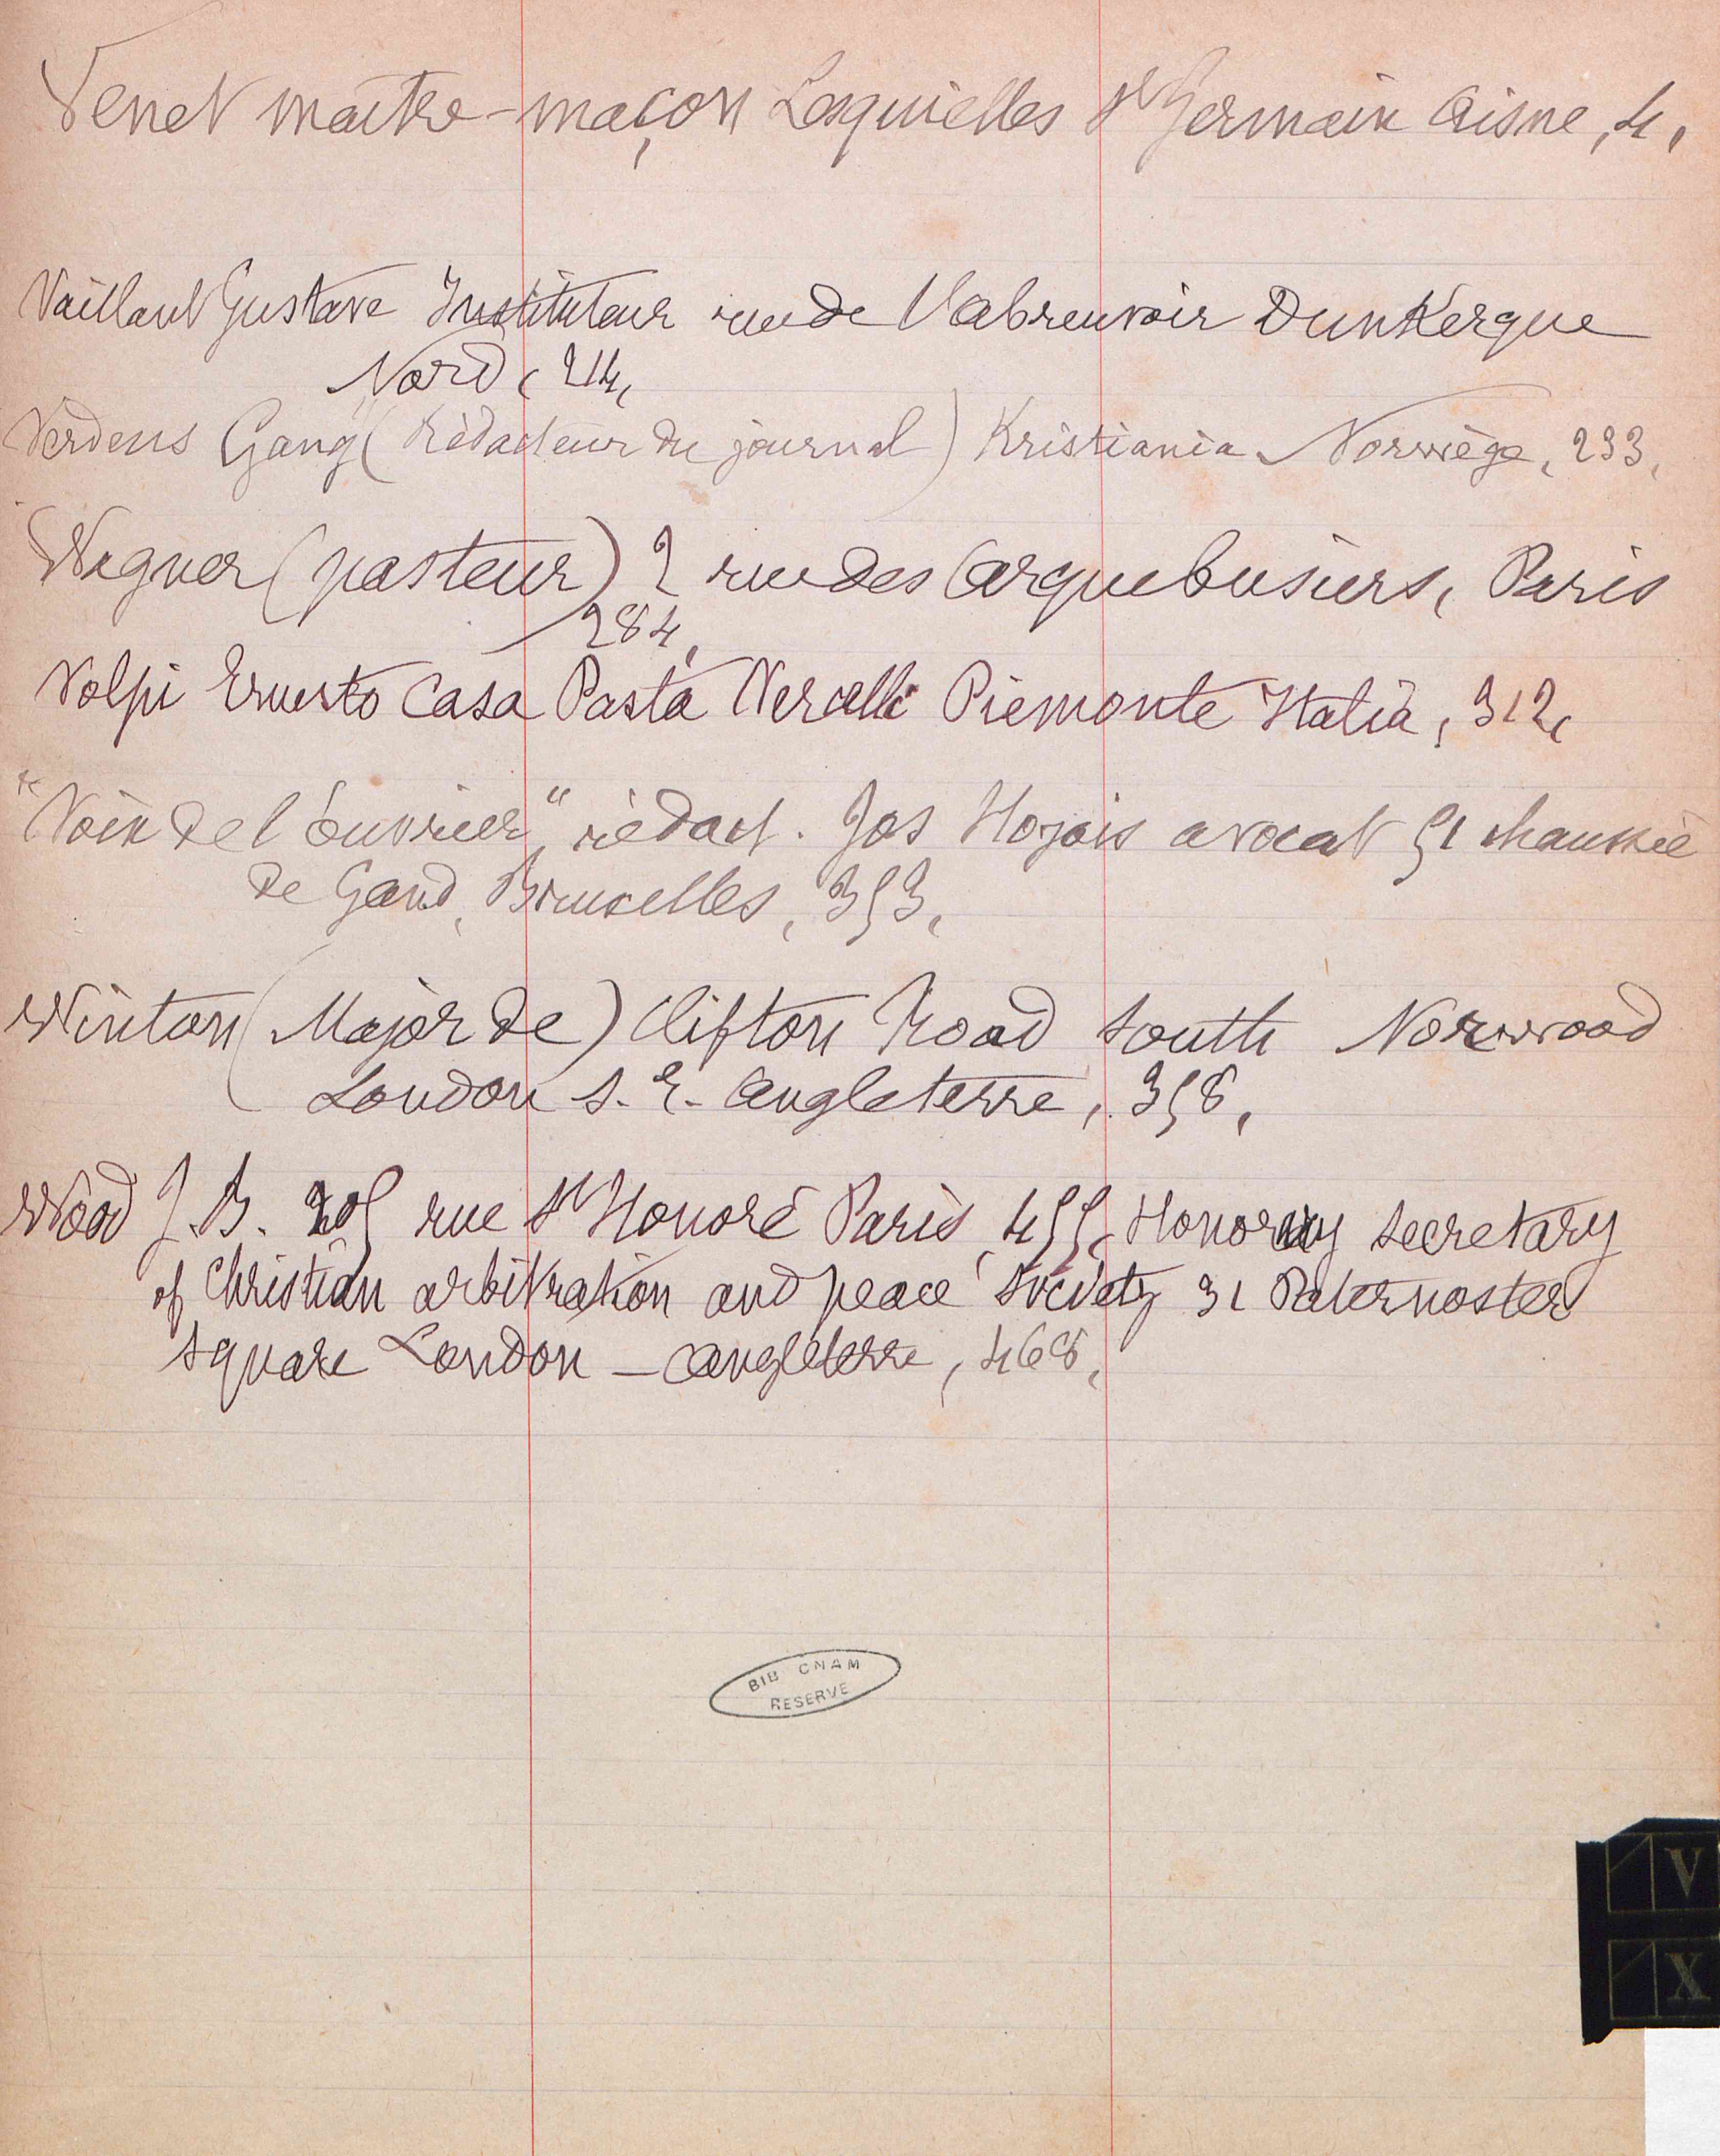 Venet maître-maçon Lesquielles St Germain Aisne, 4,
Vaillant Gustave Instituteur rue de l'abreuvoir Dunkerque
Nord, 214,
Verdens Gang (Rédacteur du journal) Kristiania Norwège, 233,
Wagner (pasteur) 2 rue des Arquebusiers, Paris
284,
Volpi Ernesto Casa Pasta Vercelli Piemonte Italia, 312,
"Voix de l'ouvrier" rédact. Jos Hoyois avocat 51 chaussée
de Gand, Bruxelles, 353,
Winton (Major de) Clifton Road South Norwood
London S. E. Angleterre, 358,
Wood J. B. 205 rue St Honoré Paris, 455, Honorary Secretary
of Christian arbitration and peace society 31 Paternoster
Square London - Angleterre, 468,
BIB CNAM
RESERVE
V
X